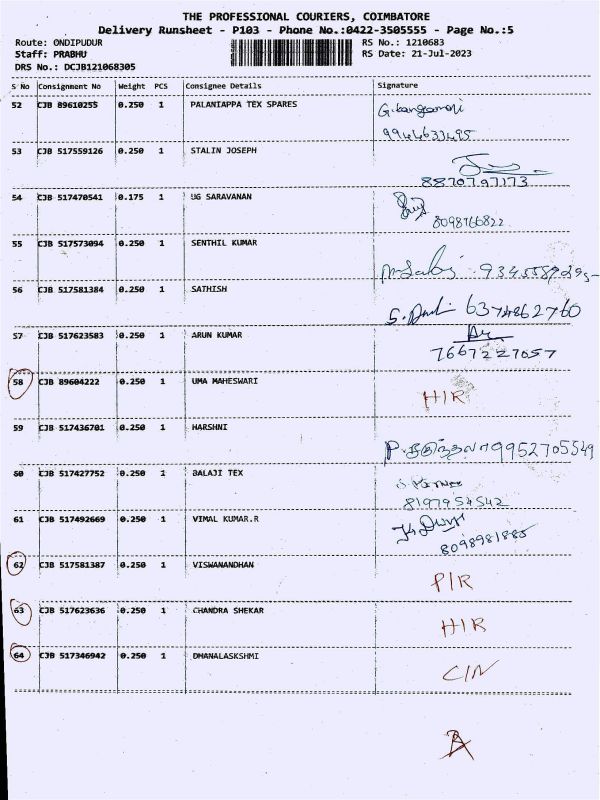 THE PROFESSIONAL COURIERS, COIMBATORE
Delivery Runsheet - P103 - Phone No.:0422-3505555 - Page No.:5
Route: ONDIPUDUR RS No.: 1210683
Staff: PRABHU RS Date: 21-Jul-2023
DRS No.: DCJB121068305
S No Consignment No Weight PCS Consignee Details Signature
52 CJB 89610255 0.250 1 PALANIAPPA TEX SPARES
9944633495
53 CJB 517559126 0.250 1 STALIN JOSEPH
8870797173
54 CJB 517470541 0.175 1 UG SARAVANAN
8098766822
55 CJB 517573094 0.250 1 SENTHIL KUMAR
56 CJB 517581384 0.250 1 SATHISH
6374862760
57 CJB 517623583 0.250 1 ARUN KUMAR
7667227057
58 CJB 89604222 0.250 1 UMA MAHESWARI
HIR
59 CJB 517436701 0.250 1 HARSHNI
9952705549
60 CJB 517427752 0.250 1 BALAJI TEX
8197954542
61 CJB 517492669 0.250 1 VIMAL KUMAR.R
8098981885
62 CJB 517581387 0.250 1 VISWANANDHAN
PIR
63 CJB 517623636 0.250 1 CHANDRA SHEKAR
HIR
64 CJB 517346942 0.250 1 DHANALASKSHMI
CIN